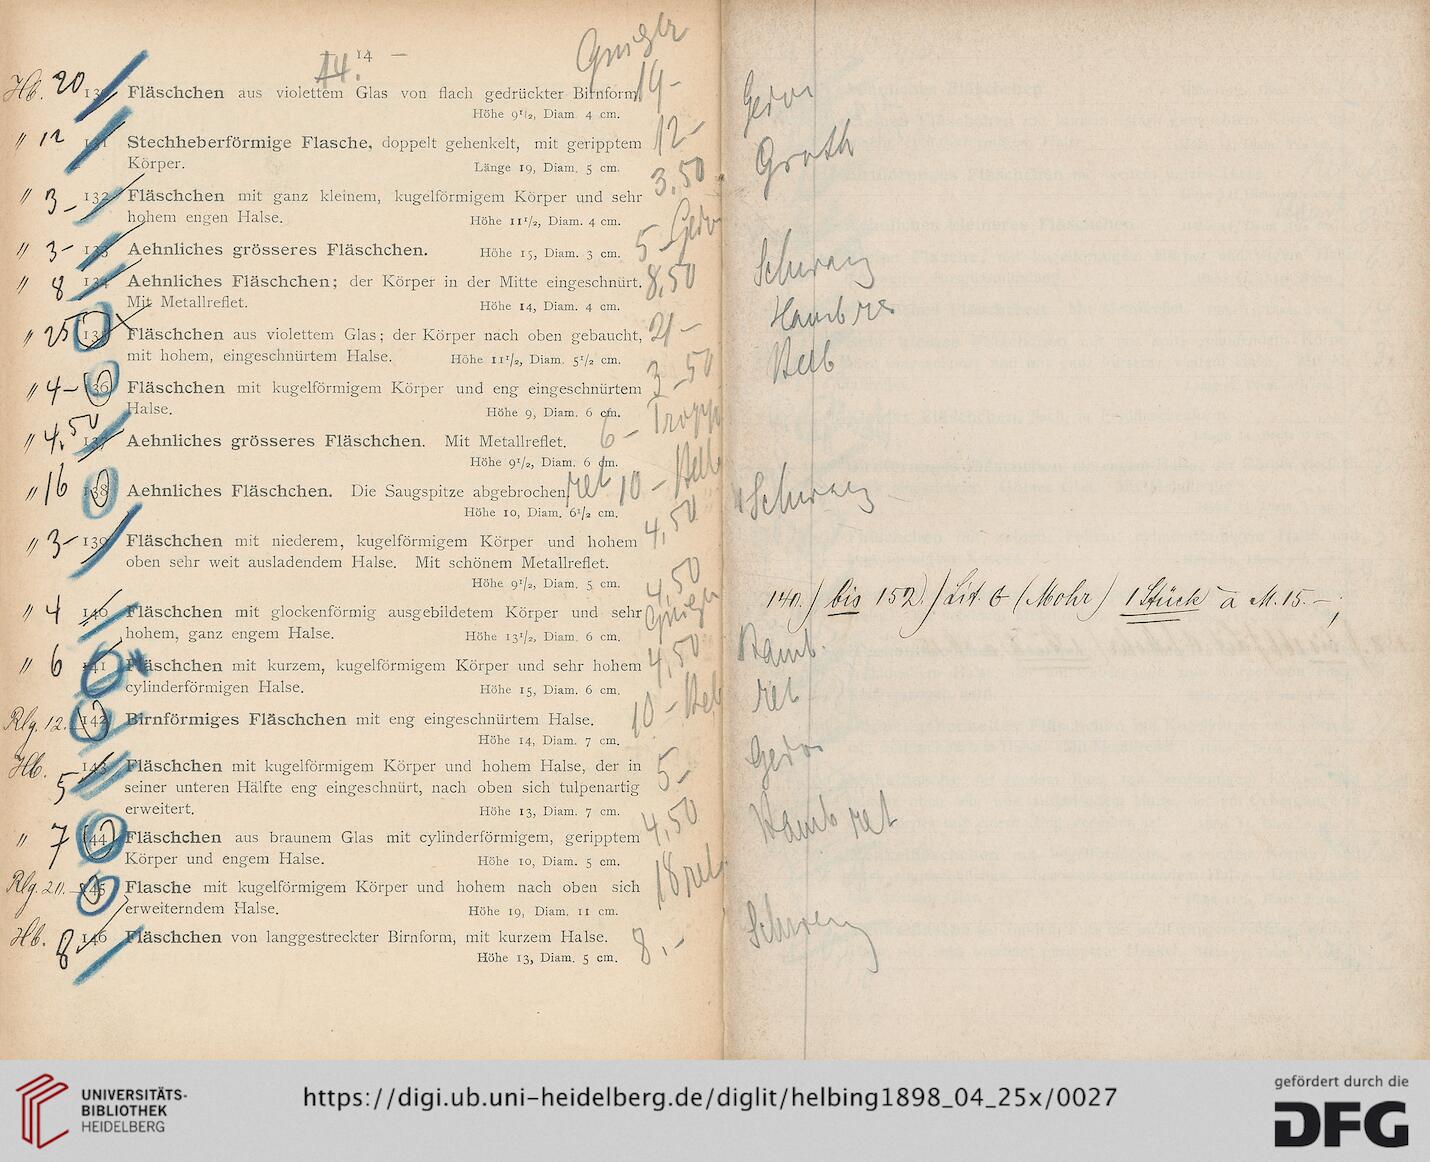 14 —
14.
Hb. 20 Fläschchen aus violettem Glas von flach gedrückter Birnform.
Höhe 9¹/₂, Diam. 4 cm.
" 12 131 Stechheberförmige Flasche, doppelt gehenkelt, mit geripptem 12-
Körper. Länge 19, Diam. 5 cm.
" 3- 132 Fläschchen mit ganz kleinem, kugelförmigem Körper und sehr 3,50
hohem engen Halse. Höhe 11¹/₂, Diam. 4 cm.
" 3- 133 Aehnliches grösseres Fläschchen. Höhe 15, Diam. 3 cm. 5-
" 8 134 Aehnliches Fläschchen; der Körper in der Mitte eingeschnürt. 8,50
Mit Metallreflet. Höhe 14, Diam. 4 cm.
" 25 135 Fläschchen aus violettem Glas; der Körper nach oben gebaucht, 21-
mit hohem, eingeschnürtem Halse. Höhe 11¹/₂, Diam. 5¹/₂ cm.
" 4- 136 Fläschchen mit kugelförmigem Körper und eng eingeschnürtem 3-50
Halse. Höhe 9, Diam. 6 cm.
" 4,50 137 Aehnliches grösseres Fläschchen. Mit Metallreflet. 6-
Höhe 9¹/₂, Diam. 6 cm.
" 16 138 Aehnliches Fläschchen. Die Saugspitze abgebrochen. ret 10-
Höhe 10, Diam. 6¹/₂ cm.
" 3- 139 Fläschchen mit niederem, kugelförmigem Körper und hohem 4,50
oben sehr weit ausladendem Halse. Mit schönem Metallreflet.
Höhe 9¹/₂, Diam. 5 cm.
" 4 140 Fläschchen mit glockenförmig ausgebildetem Körper und sehr 4,50
hohem, ganz engem Halse. Höhe 13¹/₂, Diam. 6 cm.
" 6 141 Fläschchen mit kurzem, kugelförmigem Körper und sehr hohem 4,50
cylinderförmigen Halse. Höhe 15, Diam. 6 cm.
Rlg. 12. 142 Birnförmiges Fläschchen mit eng eingeschnürtem Halse. 10-
Höhe 14, Diam. 7 cm.
Hb. 5 143 Fläschchen mit kugelförmigem Körper und hohem Halse, der in 5-
seiner unteren Hälfte eng eingeschnürt, nach oben sich tulpenartig
erweitert. Höhe 13, Diam. 7 cm.
" 7 144 Fläschchen aus braunem Glas mit cylinderförmigem, geripptem 4,50
Körper und engem Halse. Höhe 10, Diam. 5 cm.
Rlg. 20. 145 Flasche mit kugelförmigem Körper und hohem nach oben sich 18 ret
erweiterndem Halse. Höhe 19, Diam. 11 cm.
Hb. 8 146 Fläschchen von langgestreckter Birnform, mit kurzem Halse.
Höhe 13, Diam. 5 cm. 8.-
Groth
140.) bis 152.) Lit. (Mohr) 1 Stück a M. 15.-;
ret
ret
UNIVERSITÄTS-
BIBLIOTHEK
HEIDELBERG
https://digi.ub.uni-heidelberg.de/diglit/helbing1898_04_25x/0027
gefördert durch die
DFG